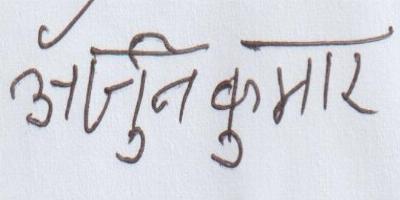 अर्जुन कुमार